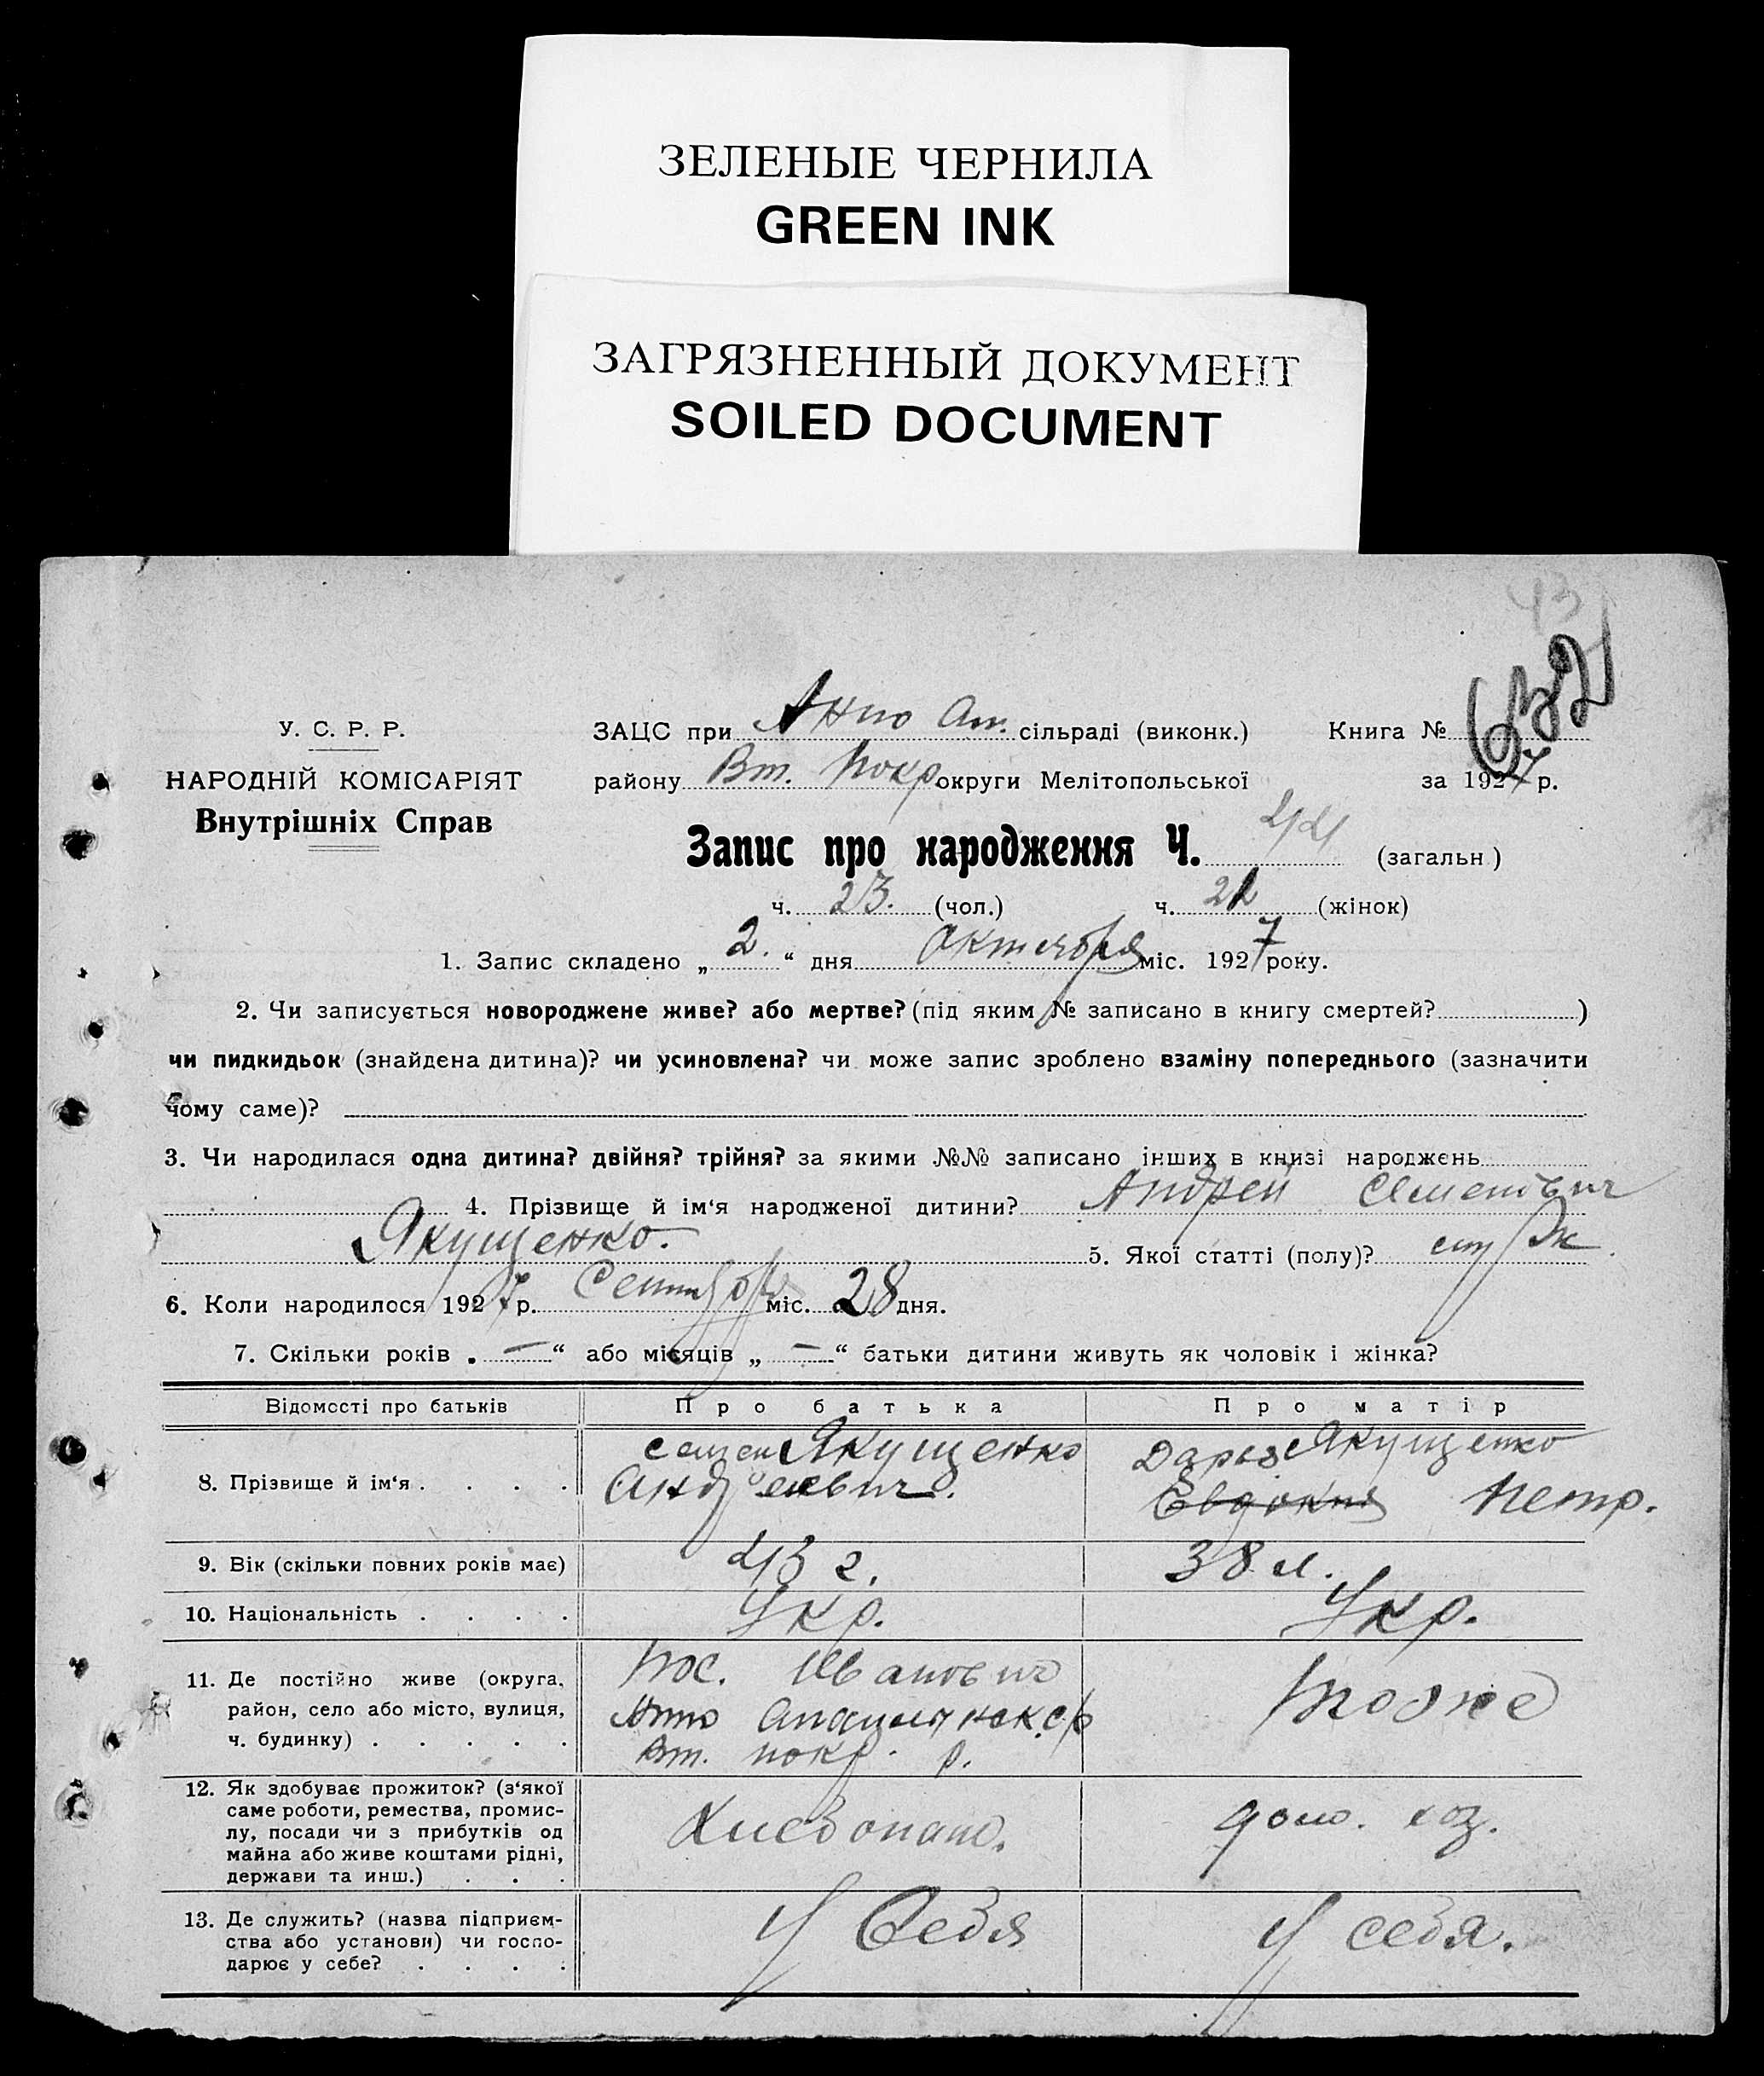 ЗЕЛЕНЫЕ ЧЕРНИЛА
GREEN INK
ЗАГРЯЗНЕННЫЙ ДОКУМЕНТ
SOILED DOCUMENT
43
У. С. Р. Р.
НАРОДНІЙ КОМІСАРІЯТ
Внутрішніх Справ
ЗАЦС при Анно Оп. сільраді (виконк.) Книга №
району Вт. Покр. округи Мелітопольської за 1927 р.
Запис про народження Ч. 44 (загальн.)
ч. 23. (чол.) ч. 21 (жінок)
1. Запис складено „ 2. “ дня Октября міс. 1927 року.
2. Чи записується новороджене живе? або мертве? (під яким № записано в книгу смертей? )
чи пидкидьок (знайдена дитина)? чи усиновлена? чи може запис зроблено взаміну попереднього (зазначити
чому саме)?
3. Чи народилася одна дитина? двійня? трійня? за якими №№ записано інших в книзі народжень
4. Прізвище й ім‘я народженої дитини? Андрей Семенович
Якущенко. 5. Якої статті (полу)?
6. Коли народилося 1927 р. Сентября міс. 28 дня.
7. Скільки років „ — “ або місяців „ — “ батьки дитини живуть як чоловік і жінка?
Відомості про батьків Про батька Про матір
8. Прізвище й ім‘я . . . . Семен Якущенко Андреевич. Дарья Якущенко Евдокия Петр.
9. Вік (скільки повних років має) 43 г. 38 л.
10. Національність . . . . Укр. Укр.
11. Де постійно живе (округа, Пос. Иванович
район, село або місто, вулиця, Анно с/с тоже
ч. будинку) . . . . . Вт. покр. р.
12. Як здобуває прожиток? (з‘якої
саме роботи, ремества, промис-
лу, посади чи з прибутків од Хлебопаш. дом. хоз.
майна або живе коштами рідні,
держави та инш.) . . .
13. Де служить? (назва підприєм-
ства або установи) чи госпо- У Себя У себя.
дарює у себе? . . . .